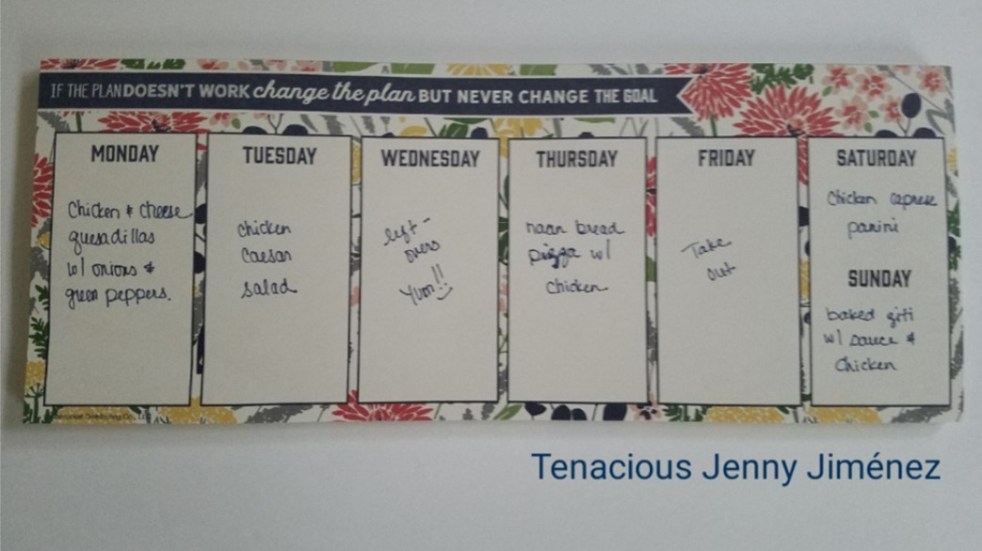 IF THE PLAN DOESN'T WORK change the plan BUT NEVER CHANGE THE GOAL
MONDAY
Chicken & cheese
quesadillas
w/ onions &
green peppers.
TUESDAY
chicken
caesar
salad
WEDNESDAY
left-
overs
Yum!!
THURSDAY
naan bread
pizza w/
chicken
FRIDAY
Take
out
SATURDAY
Chicken caprese
panini
SUNDAY
baked ziti
w/ sauce &
Chicken
Tenacious Jenny Jiménez